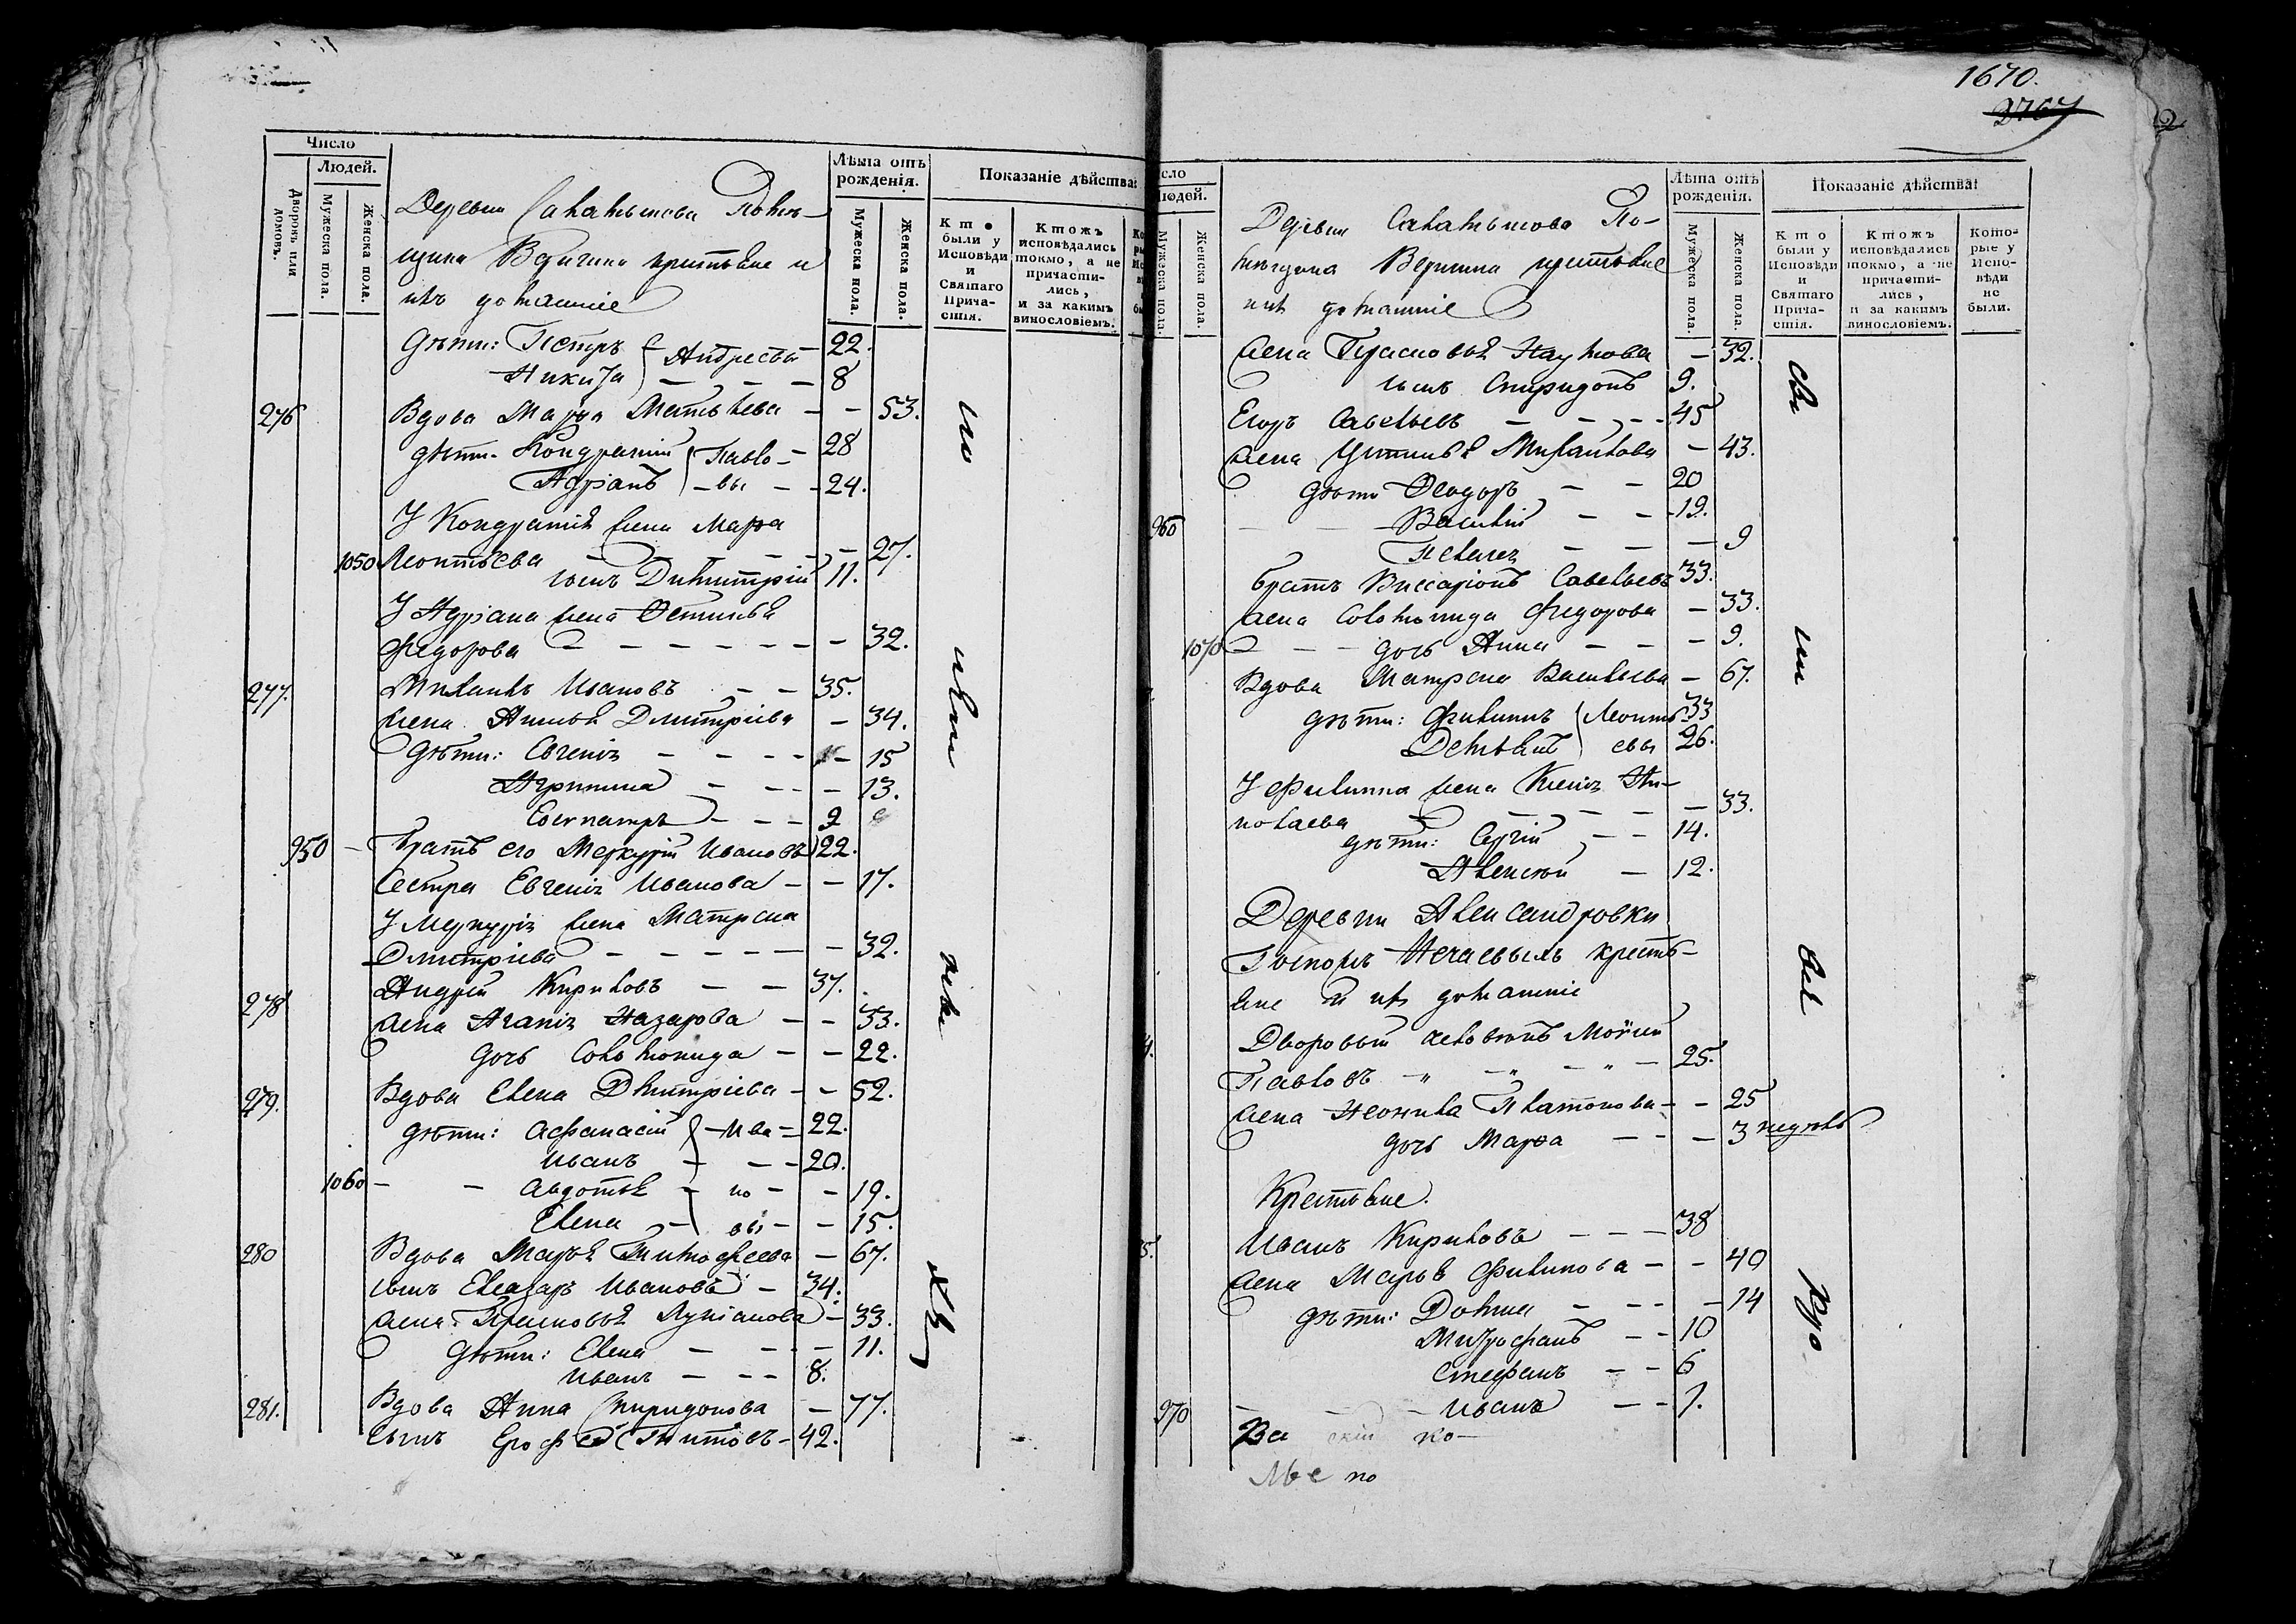 Число
Людей.
Дворовъ или домовъ.
Мужеска пола.
Женска пола.
Лѣта отъ рожденія.
Мужеска пола.
Женска пола.
Показаніе дѣйства:
Кто были у Исповѣди и Святаго Прича-стія.
Ктожъ исповѣдались токмо, а не причасти-лись, и за какимъ винословіемъ.
Деревни Салатыкова Помѣ-
щика Веригина крестьяне и
ихъ домашніе
Дѣти: Петръ Андреевы 22.
Никита 8
276 Вдова Марѳа Матвѣева 53.
дѣти Кондратій Павло- 28
Адріанъ вы 24.
У Кондратія жена Марѳа
1050 Леонтьева 27.
сынъ Димитрій 11.
У Адріана жена Устинья
Федорова 32.
277. Михаилъ Ивановъ 35.
жена Анисья Дмитріева 34.
Дѣти: Евгенія 15
Агрипина 13.
9
950 Братъ его Меркурій Ивановъ 22.
Сестра Евгенія Иванова 17.
У Меркурія жена Матрена
Дмитріева 32.
278 Андрей Кириловъ 37.
жена Агапія Назарова 33.
дочь Соломонида 22.
279. Вдова Елена Дмитріева 52.
дѣти: Афанасій Ива- 22.
Иванъ 20.
1060 Авдотья но 19.
Елена вы 15.
280 Вдова Марья Тимофеева 67.
сынъ Елеазаръ Ивановъ 34.
жена Прасковья Лукіанова 33.
Дѣти: Елена 11.
Иванъ 8.
281. Вдова Анна Спиридонова 77.
сынъ Ерофей Титовъ 42.
1670.
2767
сло
юдей.
Мужеска пола.
Женска пола.
Лѣта отъ рожденія.
Мужеска пола.
Женска пола.
Показаніе дѣйства:
Кто были у Исповѣди и Святаго Прича-стія.
Ктожъ исповѣдались токмо, а не причасти-лись, и за какимъ винословіемъ.
Кото-рые у Испо-вѣди не были.
Деревни Салатыкова По-
мѣщика Веригина крестьяне
ихъ домашніе
жена Прасковья Наумова 32.
сынъ Спиридонъ 9.
Егоръ Савельевъ 45
жена Устинья Михайлова 43.
дѣти Ѳеодоръ 20
960 Василій 19.
Пелагея 9
братъ Виссаріонъ Савельевъ 33.
жена Соломонида Федорова 33.
1070 дочь Анна 9.
Вдова Матрена Васильева 67.
дѣти: Филиппъ Леонть- 33
Демьянъ евы 26.
У Филиппа жена Ксенія Ни-
колаева 33.
дѣти: Сергій 14.
Алексѣй 12.
Деревни Александровки
Господъ Нечаевыхъ кресть-
яне и ихъ домашніе
Дворовый человѣкъ Моѵсей
Павловъ 25.
жена Неонила Платонова 25
дочь Марѳа 3 недѣль
Крестьяне.
Иванъ Кириловъ 38
жена Марья Филипова 40
дѣти: Домна 14
Митрофанъ 10
Стефанъ 6
970 Иванъ 1.